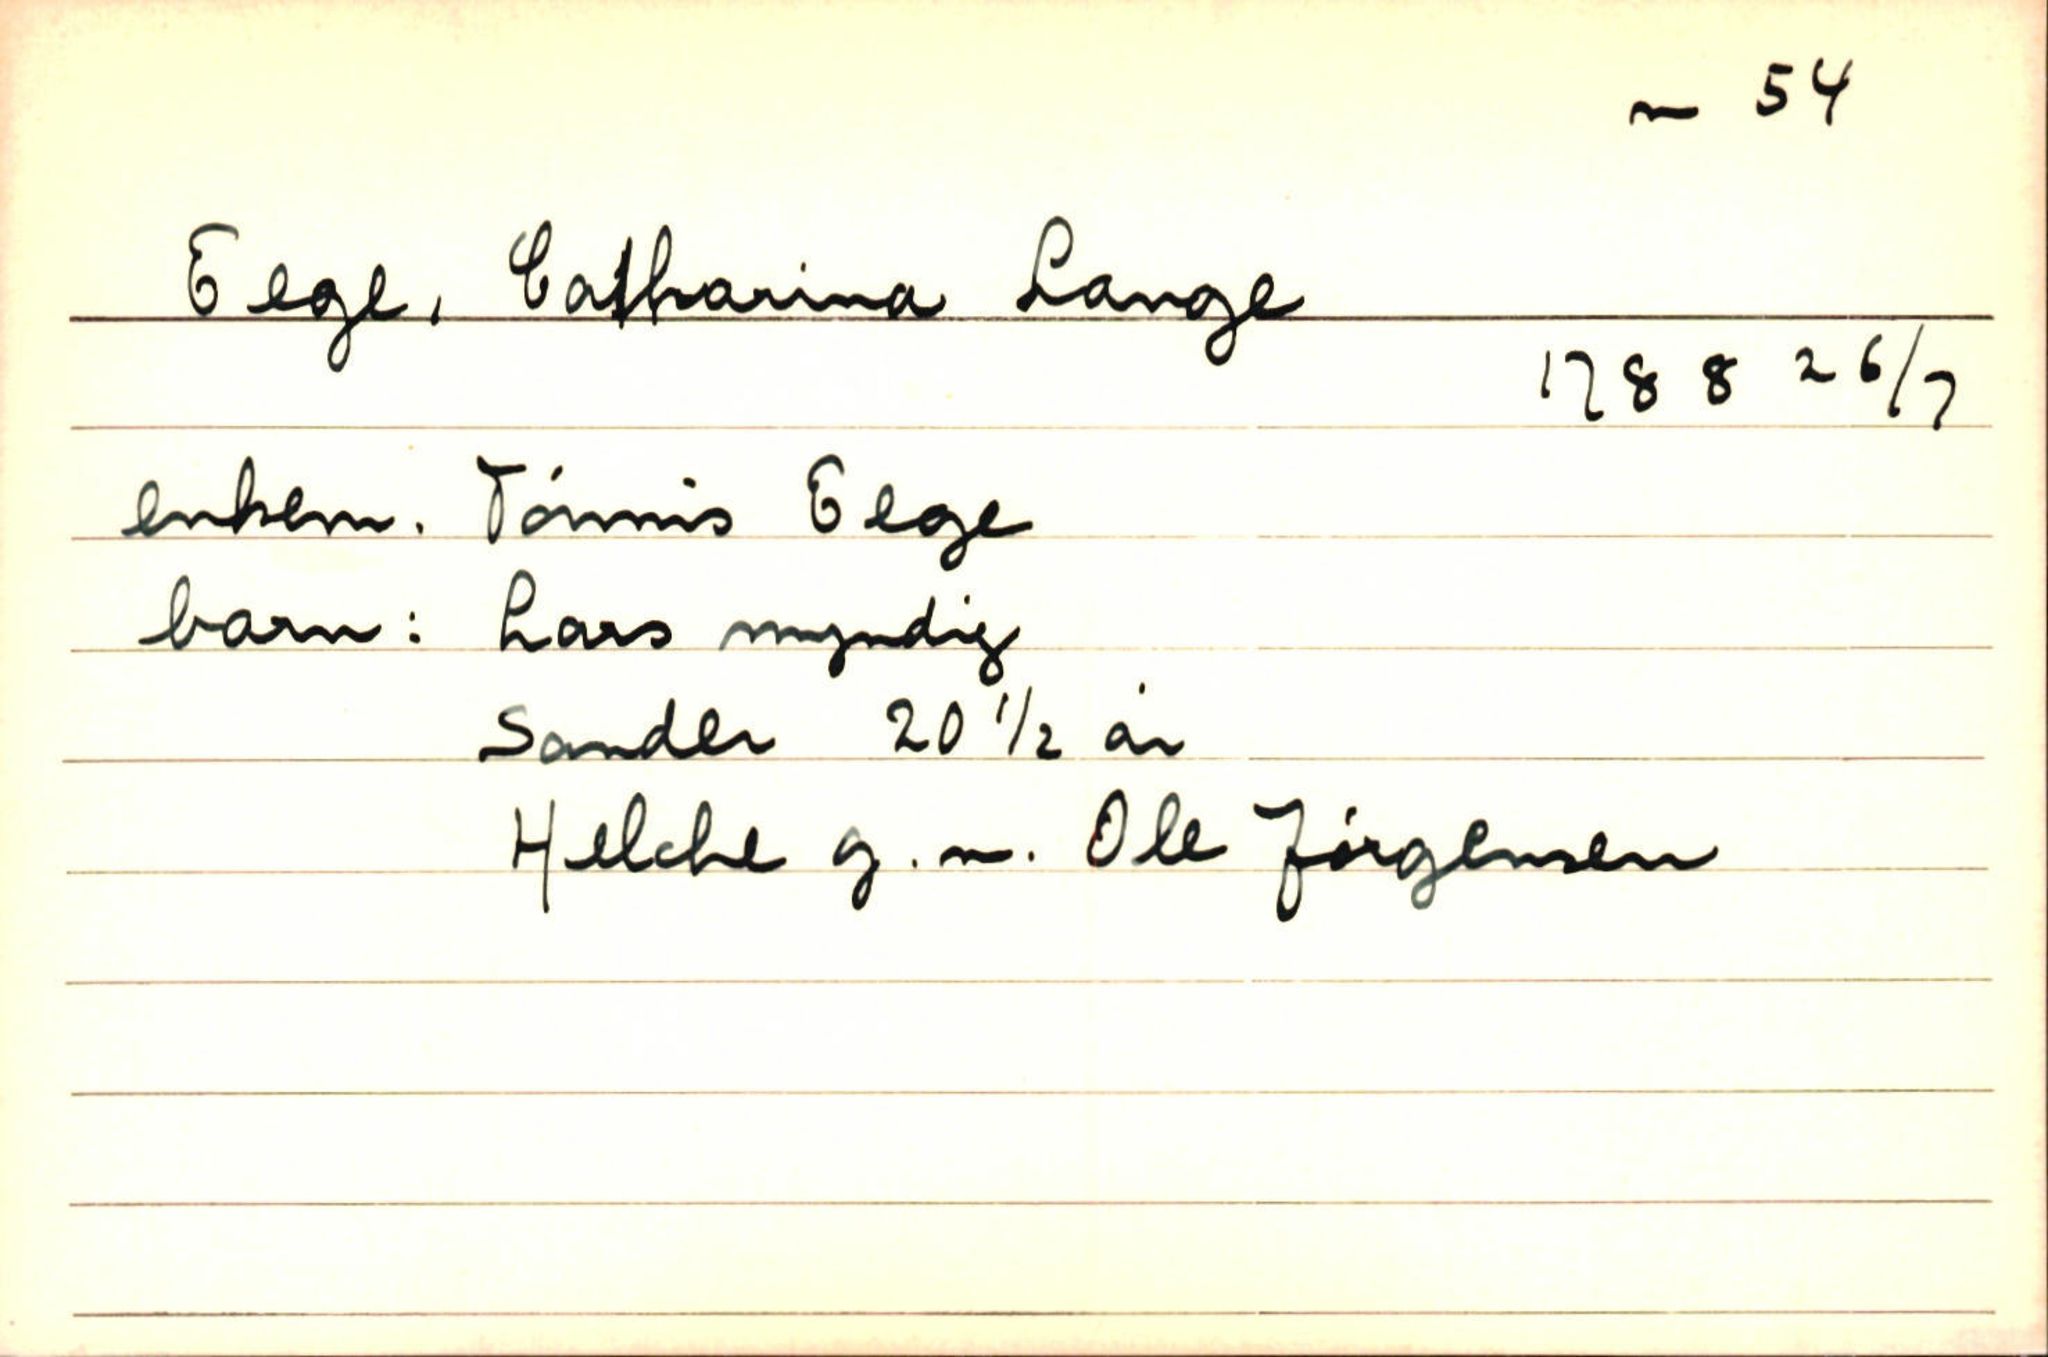 m 54
Eege, Catharina Lange
1788 26/7
enkem. Tónnis Eege
barn: Lars myndig
Sander 20 1/2 år
Helche g. m. Ole Jórgensen